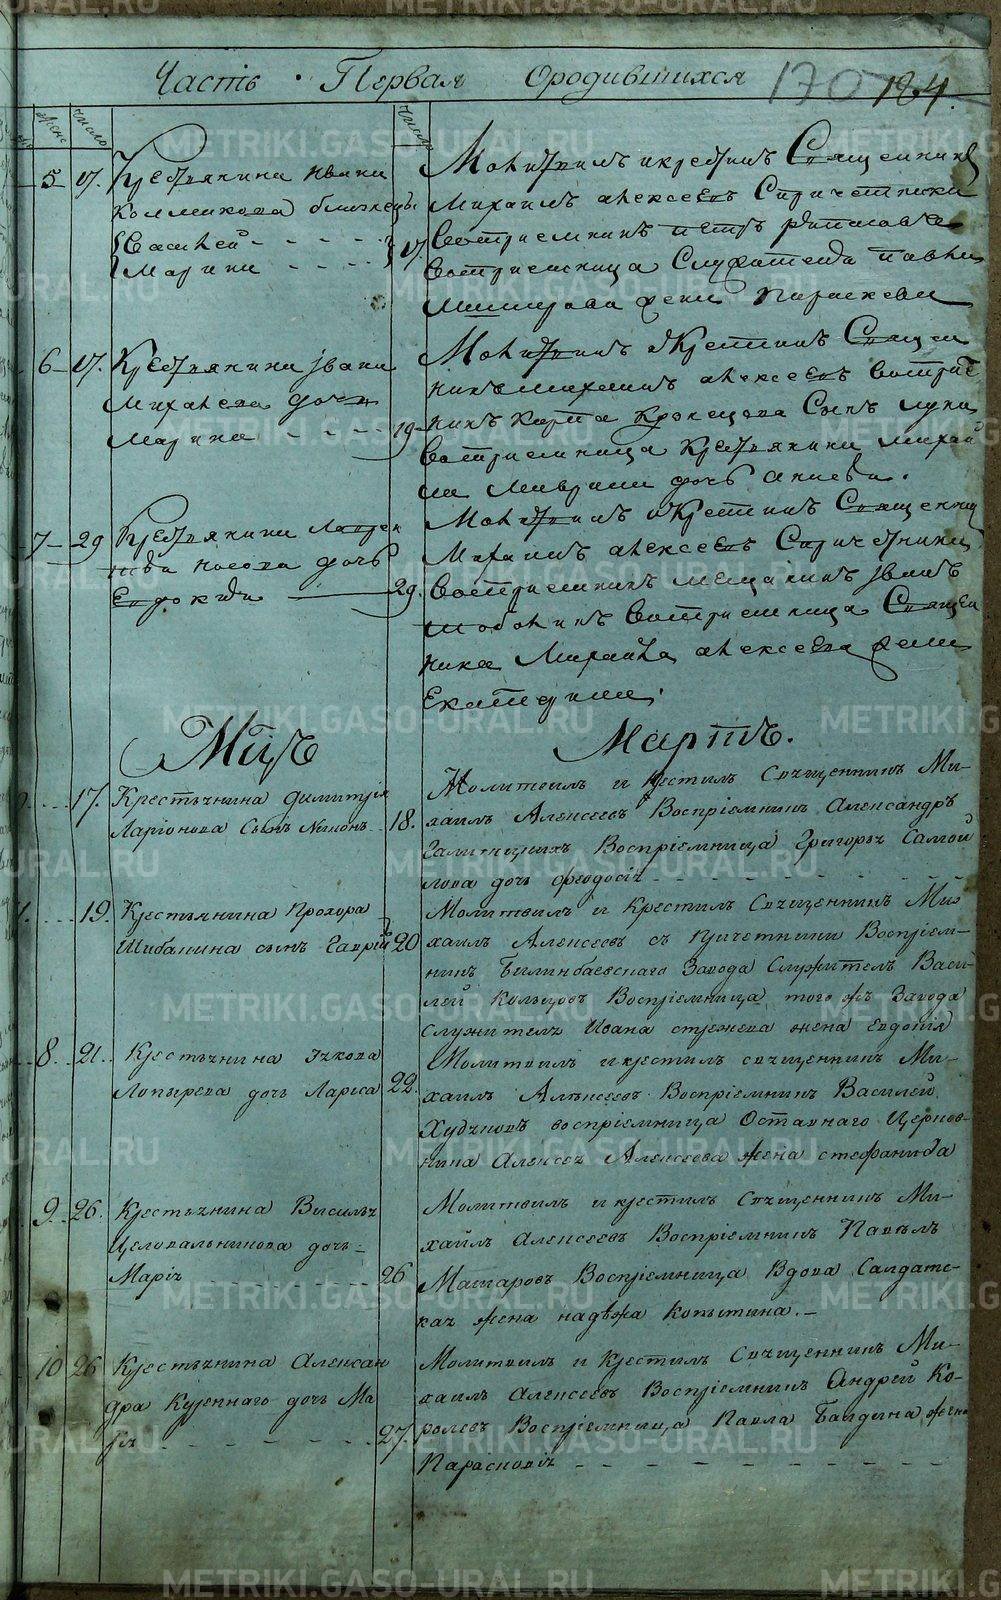 Часть Первая Ородившихся
170 184.
женс число число
5 17. Крестьянина Ивана
Колмакова близнецы
Василей
Марина
17. Молитвилъ икрестилъ Священникъ
Михаилъ алексеевъ Спричетники
Восприемникъ петръ
восприемница Служителя павла
жена Параскева
6 17. Крестьянина Iвана
Михалева дочь
Марина
19 Молитвилъ иКрестилъ Священ
никъ михаилъ алексеевъ воспрiем
никъ карпа Сынъ лука
восприемница Крестьянина михай
ла дочь
7 29 Крестьянина Лаврен
тья носова дочь
Евдокия
29. Молитвилъ иКрестилъ Священникъ
Михаилъ алексеевъ Спричетники
восприемникъ мещанинъ iванъ
восприемница Священ
ника Михаила алексеева жена
Екатерина.
Мцъ Мартъ.
17. Крестьянина Димитрiя
Ларiонова Сынъ
18. Молитвилъ и крестилъ Священникъ Ми-
хаилъ Алексеевъ Воспрiемникъ Александръ
Галицкихъ Воспрiемница Григорья Самой
лова дочь феодосiя
19. Крестьянина Прохора
Шибанина сынъ Гаврiй
20 Молитвилъ и Крестилъ Священникъ Ми-
хаилъ Алексеевъ съ Причетники Воспрiем-
никъ Билимбаевскаго Завода Служитель Васи-
лей Кольцовъ Воспрiемница того жъ Завода
Служителя Ивана стяжева жена евдокiя
8. 21. Крестьянина Iякова
Лопырева дочь Лариса
22. Молитвилъ икрестилъ священникъ Ми-
хаилъ Алексеевъ Воспрiемникъ Василей
Худяковъ воспрiемница Оставнаго Церков-
ника Алексея Алексеева жена стефанида
9. 26. Крестьянина Василья
Целовальникова дочь
Марiя
26 Молитвилъ и крестилъ Священникъ Ми-
хайлъ Алексеевъ Воспрiемникъ Павелъ
Макаровъ Воспрiемница Вдова Салдатс-
кая жена надежа Копытина.
10 26 Крестьянина Алексан
дра Куреннаго дочь Ма
рья
27. Молитвилъ и Крестилъ Священникъ Ми-
хаилъ Алексеевъ Воспрiемникъ Андрей Ко-
ролевъ Воспрiемница Павла Балдина жена
Парасковiя
METRIKI.GASO-URAL.RU